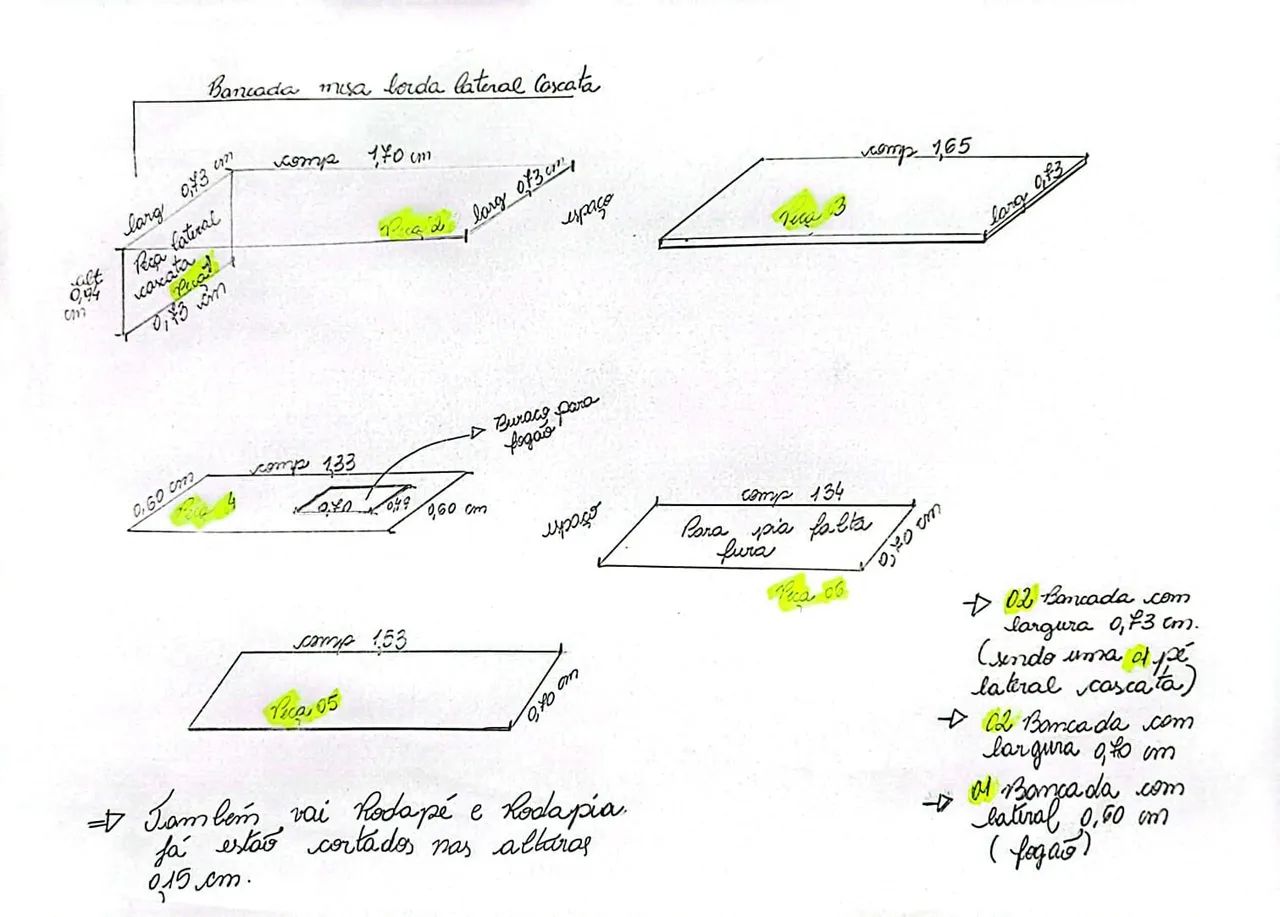 Bancada mesa borda lateral Cascata
larg 0,73 cm
comp 1,70 cm
larg 0,73 cm
espaço
Peça 2
Peça lateral
cascata
Peça 1
0,73 cm
alt
0,94
cm
comp 1,65
larg 0,73
Peça 3
Buraco para
fogão
comp 1,33
0,60 cm
Peça 4
0,70
0,49
0,60 cm
espaço
comp 134
Para pia falta
fura
0,70 cm
Peça 06
comp 1,53
Peça 05
0,70 cm
02 Bancada com
largura 0,73 cm.
(sendo uma 01 pé
lateral cascata)
02 Bancada com
largura 0,70 cm
01 Bancada com
lateral 0,60 cm
(fogão)
Também vai Rodapé e Rodapia.
Já estão cortados nas alturas
0,15 cm.